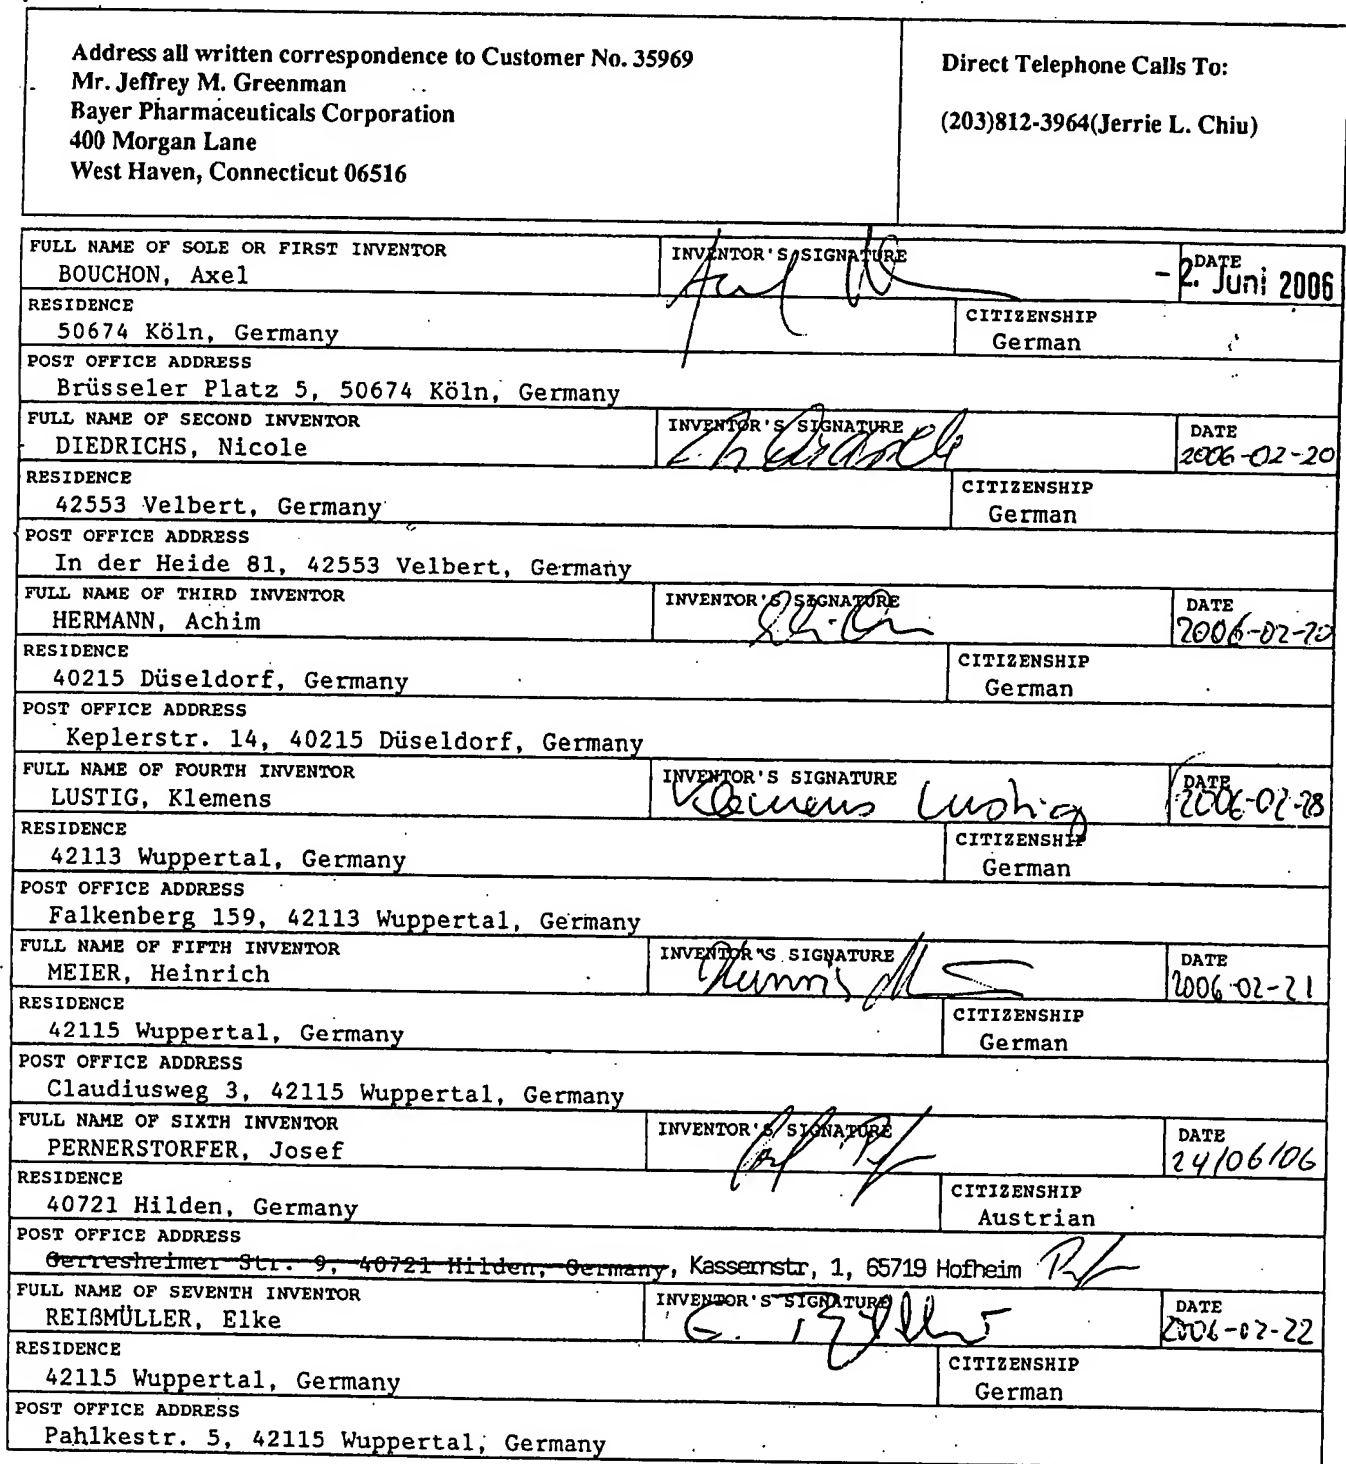 Address all written correspondence to Customer No. 35969
Mr. Jeffrey M. Greenman
Bayer Pharmaceuticals Corporation
400 Morgan Lane
West Haven, Connecticut 06516
Direct Telephone Calls To:
(203)812-3964(Jerrie L. Chiu)
FULL NAME OF SOLE OR FIRST INVENTOR
BOUCHON, Axel
INVENTOR'S SIGNATURE
DATE
- 2. Juni 2006
RESIDENCE
50674 Köln, Germany
CITIZENSHIP
German
POST OFFICE ADDRESS
Brüsseler Platz 5, 50674 Köln, Germany
FULL NAME OF SECOND INVENTOR
DIEDRICHS, Nicole
INVENTOR'S SIGNATURE
DATE
2006-02-20
RESIDENCE
42553 Velbert, Germany
CITIZENSHIP
German
POST OFFICE ADDRESS
In der Heide 81, 42553 Velbert, Germany
FULL NAME OF THIRD INVENTOR
HERMANN, Achim
INVENTOR'S SIGNATURE
DATE
2006-02-20
RESIDENCE
40215 Düseldorf, Germany
CITIZENSHIP
German
POST OFFICE ADDRESS
Keplerstr. 14, 40215 Düseldorf, Germany
FULL NAME OF FOURTH INVENTOR
LUSTIG, Klemens
INVENTOR'S SIGNATURE
Klemens Lustig
DATE
2006-02-28
RESIDENCE
42113 Wuppertal, Germany
CITIZENSHIP
German
POST OFFICE ADDRESS
Falkenberg 159, 42113 Wuppertal, Germany
FULL NAME OF FIFTH INVENTOR
MEIER, Heinrich
INVENTOR'S SIGNATURE
DATE
2006-02-21
RESIDENCE
42115 Wuppertal, Germany
CITIZENSHIP
German
POST OFFICE ADDRESS
Claudiusweg 3, 42115 Wuppertal, Germany
FULL NAME OF SIXTH INVENTOR
PERNERSTORFER, Josef
INVENTOR'S SIGNATURE
DATE
24/06/06
RESIDENCE
40721 Hilden, Germany
CITIZENSHIP
Austrian
POST OFFICE ADDRESS
Gerresheimer Str. 9, 40721 Hilden, Germany, Kassernstr, 1, 65719 Hofheim
FULL NAME OF SEVENTH INVENTOR
REIßMÜLLER, Elke
INVENTOR'S SIGNATURE
DATE
2006-02-22
RESIDENCE
42115 Wuppertal, Germany
CITIZENSHIP
German
POST OFFICE ADDRESS
Pahlkestr. 5, 42115 Wuppertal, Germany